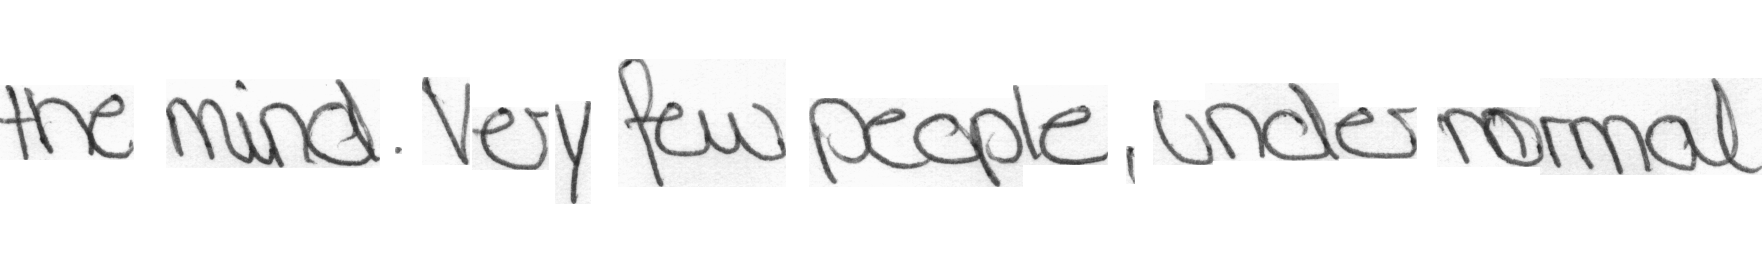 the mind. Very few people, under normal